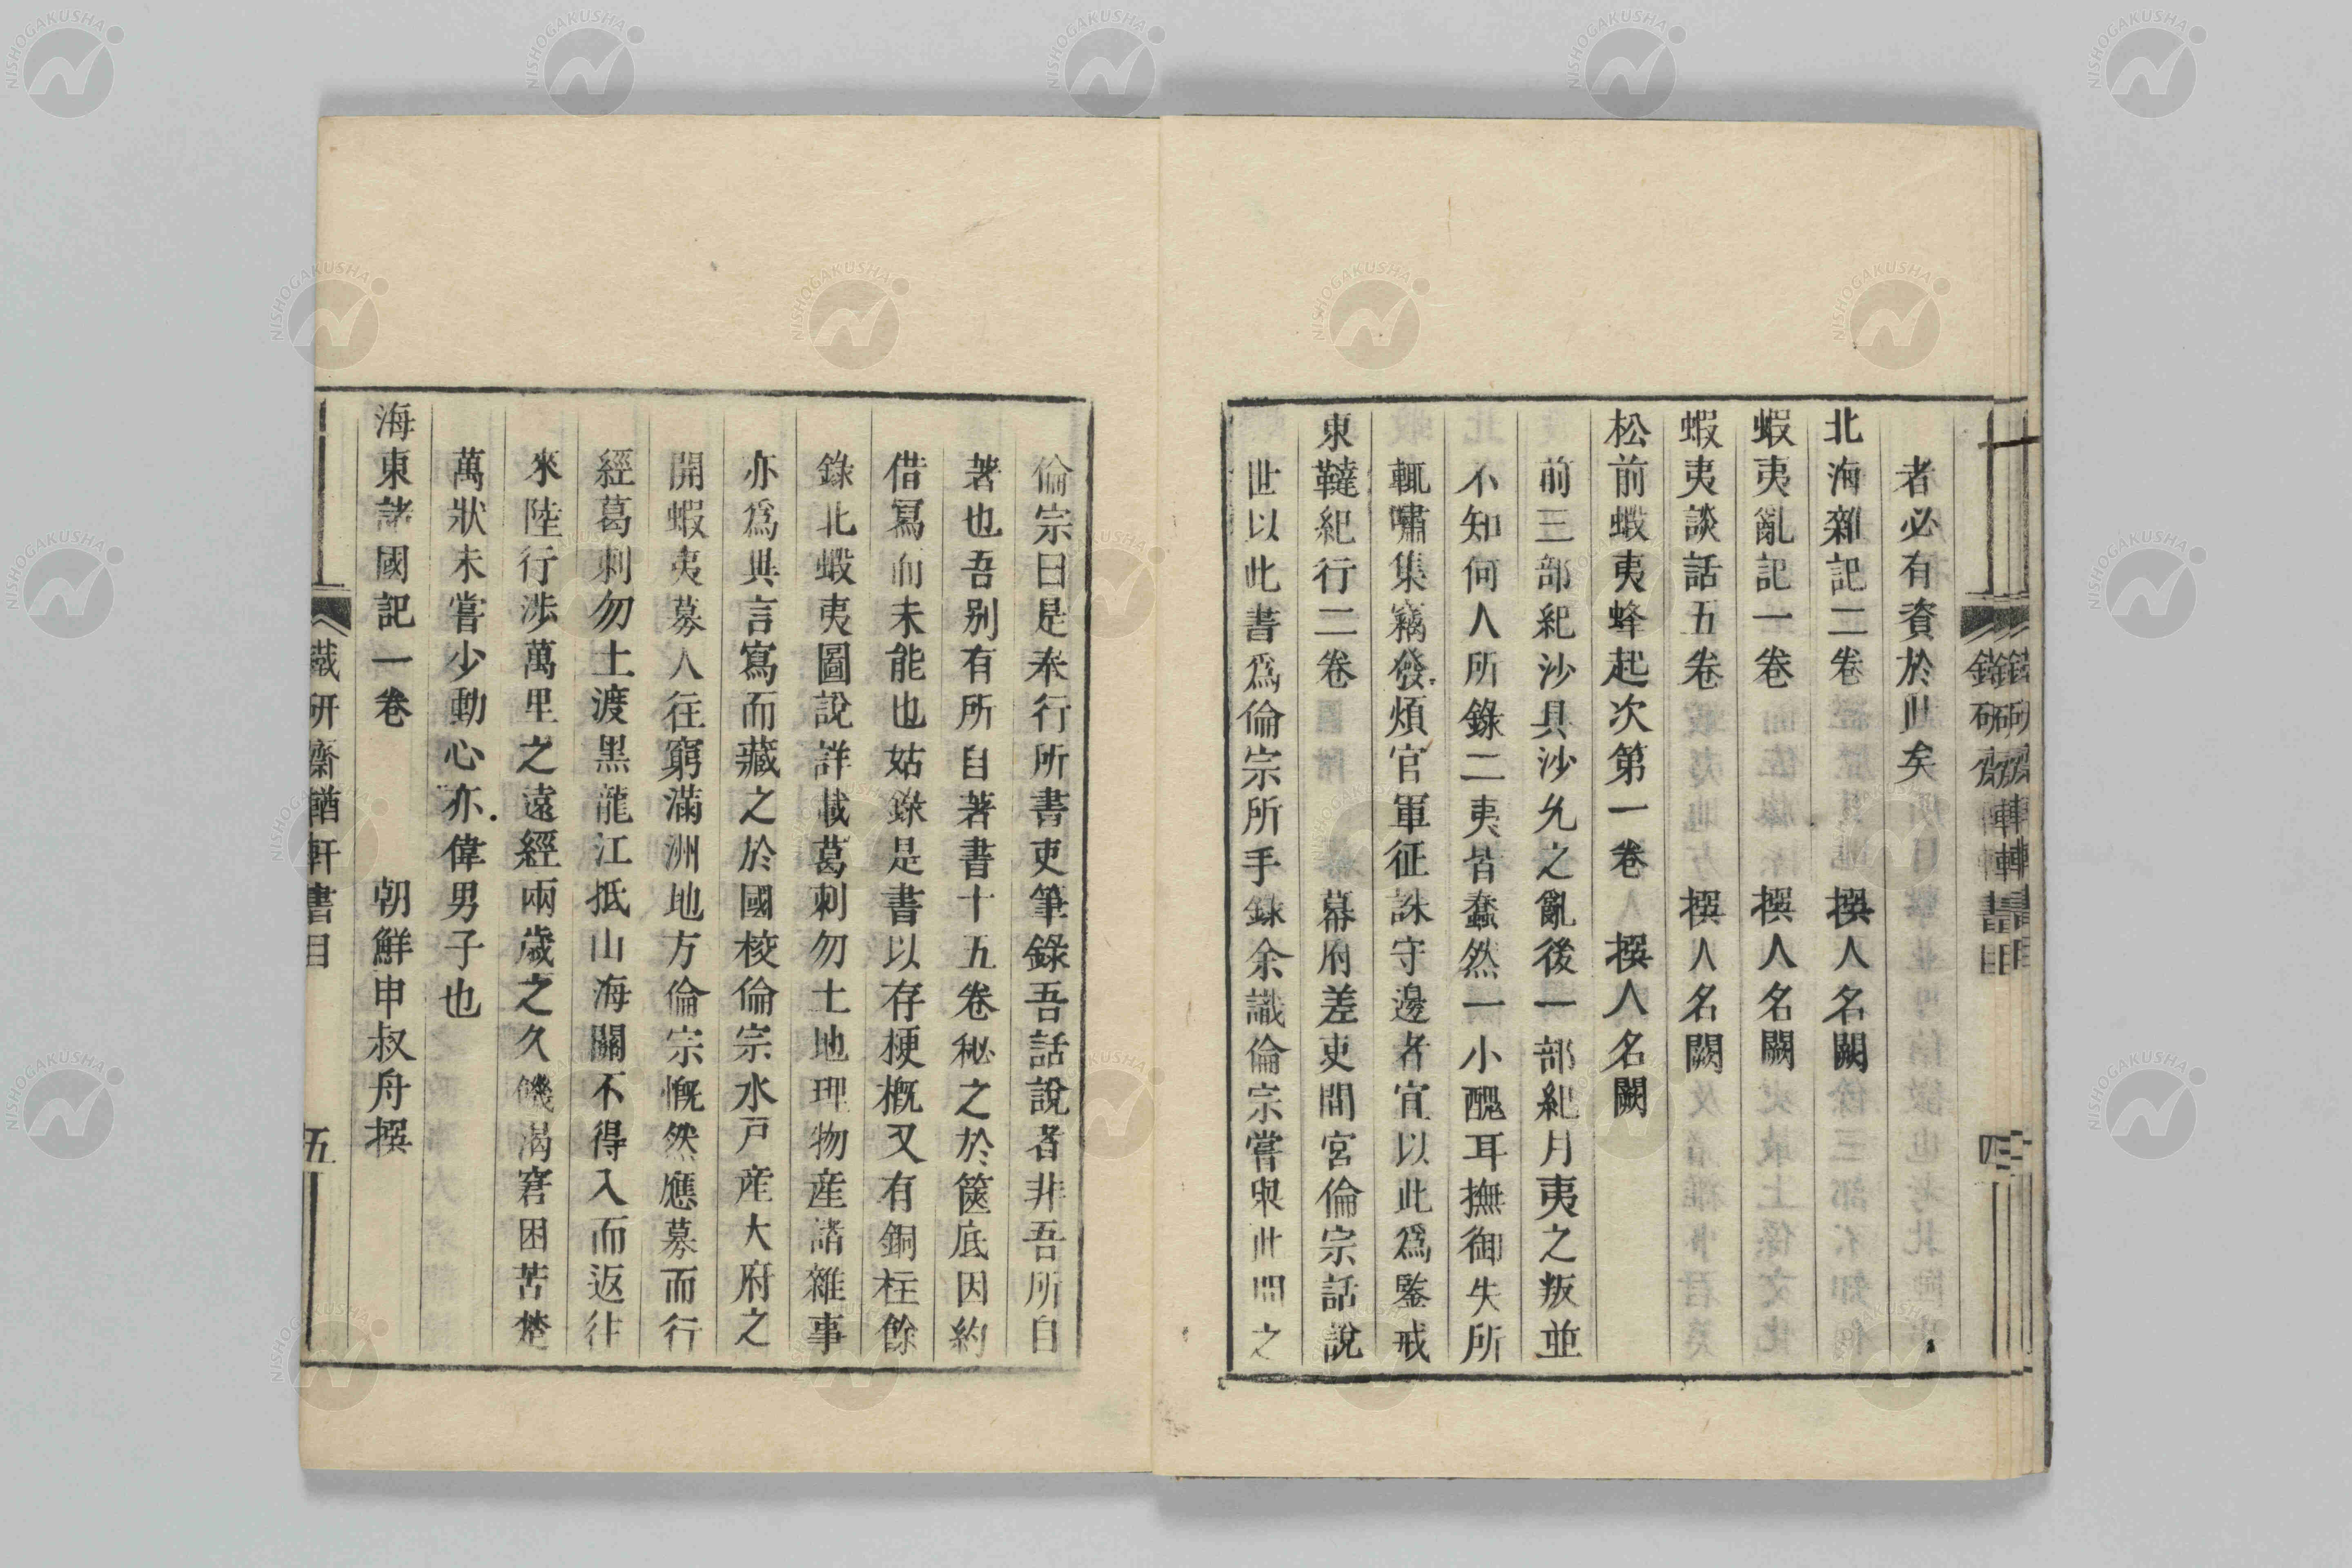 者必有資於此矣
北海雜記二卷 撰人名闕
蝦夷亂記一卷 撰人名闕
蝦夷談話五卷 撰人名闕
松前蝦夷蜂起次第一卷 撰人名闕
前三部紀沙具沙允之亂後一部紀月夷之叛並
不知何人所錄二夷皆蠢然一小醜耳撫御失所
輒嘯集竊發煩官軍征誅守邊者宜以此爲鑒戒
東韃紀行二卷 幕府差吏間宮倫宗話說
世以此書爲倫宗所手錄余識倫宗嘗與此問之
倫宗曰是奉行所書吏筆錄吾話說者非吾所自
著也吾別有所自著書十五卷秘之於篋底因約
借寫而未能也姑錄是書以存梗概又有銅柱餘
錄北蝦夷圖說詳載葛刺勿土地理物産諸雜事
亦爲其言寫而藏之於國校倫宗水戸産大府之
開蝦夷募人往窮滿洲地方倫宗慨然應募而行
經葛刺勿土渡黑龍江抵山海關不得入而返往
來陸行涉萬里之遠經兩歲之久饑渴窘困苦楚
萬狀未嘗少動心亦偉男子也
海東諸國記一卷 朝鮮申叔舟撰
藏研齋輶軒書目 五
NISHOGAKUSHA